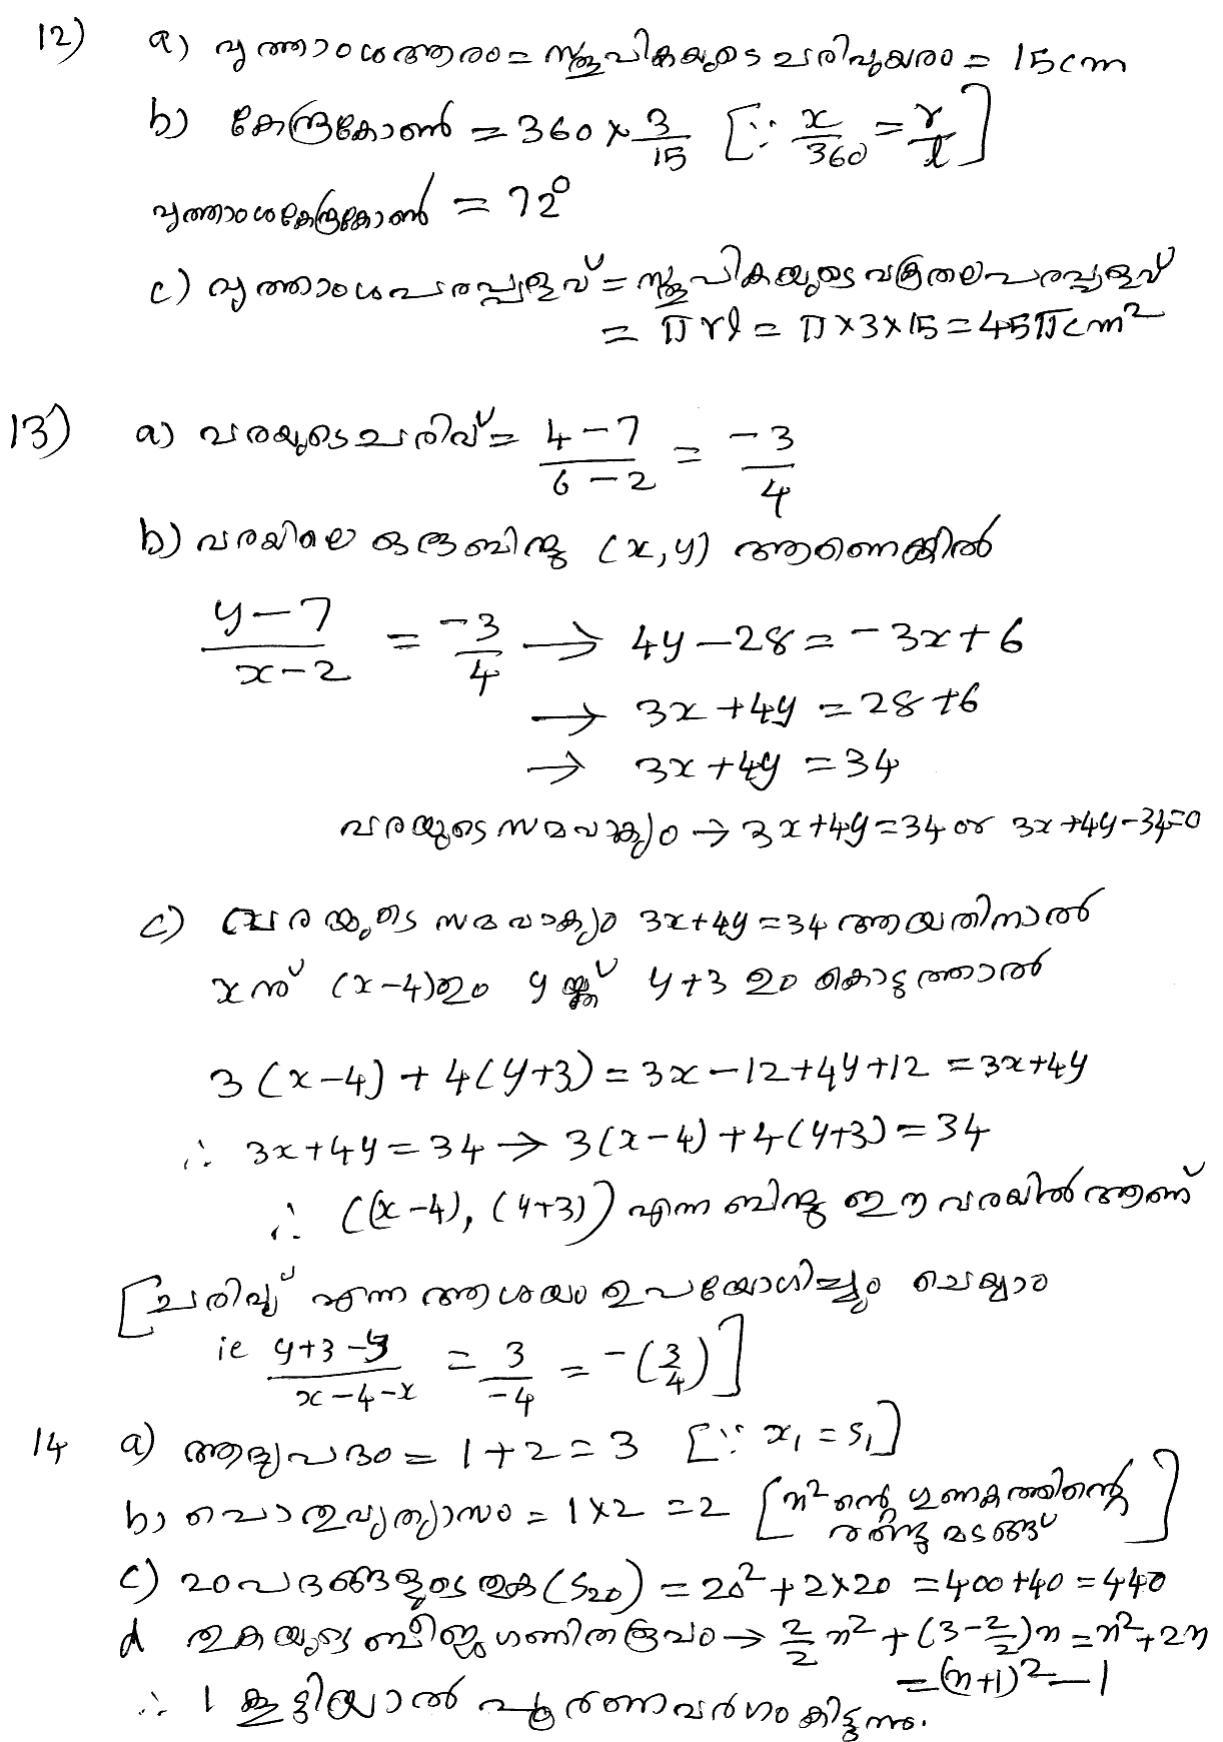 12) a) വൃത്താംശആരം = സ്തൂപികയുടെ ചരിവുയരം = 15cm
b) കേന്ദ്രകോൺ = 360 × 3/15 [∵ x/360 = r/l]
വൃത്താംശകേന്ദ്രകോൺ = 72°
c) വൃത്താംശപരപ്പളവ് = സ്തൂപികയുടെ വക്രതലപരപ്പളവ്
= πrl = π×3×15 = 45πcm²
13) a) വരയുടെ ചരിവ് = (4-7)/(6-2) = -3/4
b) വരയിലെ ഒരു ബിന്ദു (x,y) ആണെങ്കിൽ
(y-7)/(x-2) = -3/4 → 4y-28 = -3x+6
→ 3x+4y = 28+6
→ 3x+4y = 34
വരയുടെ സമവാക്യം → 3x+4y=34 or 3x+4y-34=0
c) വരയുടെ സമവാക്യം 3x+4y=34 ആയതിനാൽ
x ന് (x-4) ഉം y ക്ക് y+3 ഉം കൊടുത്താൽ
3(x-4)+4(y+3) = 3x-12+4y+12 = 3x+4y
∴ 3x+4y=34 → 3(x-4)+4(y+3)=34
∴ ((x-4), (y+3)) എന്ന ബിന്ദു ഈ വരയിൽ ആണ്
[ചരിവ് എന്ന ആശയം ഉപയോഗിച്ചും ചെയ്യാം
ie (y+3-y)/(x-4-x) = 3/-4 = -(3/4)]
14 a) ആദ്യപദം = 1+2 = 3 [∵ x₁ = S₁]
b) പൊതുവ്യത്യാസം = 1×2 = 2 [n² ന്റെ ഗുണകത്തിന്റെ
രണ്ടു മടങ്ങ്]
c) 20 പദങ്ങളുടെ തുക (S₂₀) = 20²+2×20 = 400+40 = 440
d തുകയുടെ ബീജഗണിതരൂപം → 2/2 n² + (3-2/2)n = n²+2n
= (n+1)²-1
∴ 1 കൂട്ടിയാൽ പൂർണവർഗം കിട്ടുന്നു.